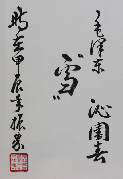 毛泽东
沁园春
"雪"
时在甲辰年振